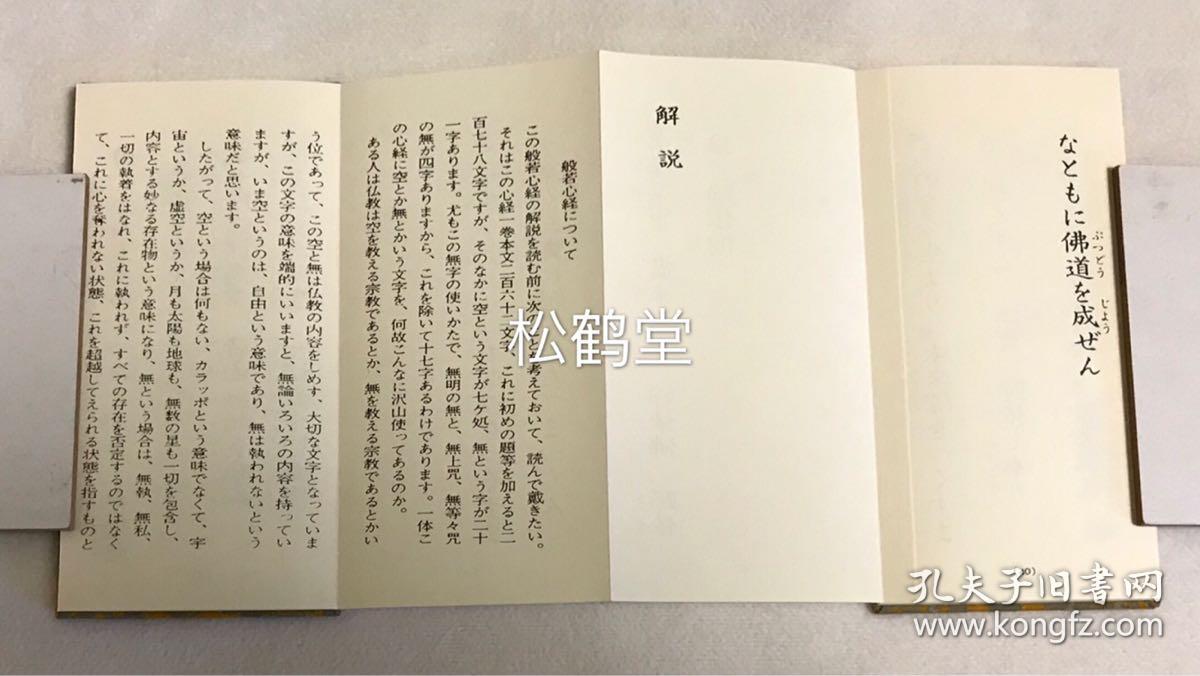 なともに佛道を成ぜん
ぶつどう
じょう
解説
般若心経について
この般若心経の解説を読む前に次のことを考えておいて、読んで戴きたい。
それはこの心経一巻本文二百六十二文字、これに初めの題等を加えると二
百七十八文字ですが、そのなかに空という文字が七ケ処、無という字が二十
一字あります。尤もこの無字の使いかたで、無明の無と、無上咒、無等々咒
の無が四字ありますから、これを除いて十七字あるわけであります。一体こ
の心経に空とか無とかいう文字を、何故こんなに沢山使ってあるのか。
ある人は仏教は空を教える宗教であるとか、無を教える宗教であるとかい
う位であって、この空と無は仏教の内容をしめす、大切な文字となっていま
すが、この文字の意味を端的にいいますと、無論いろいろの内容を持ってい
ますが、いま空というのは、自由という意味であり、無は執われないという
意味だと思います。
したがって、空という場合は何もない、カラッポという意味でなくて、宇
宙というか、虚空というか、月も太陽も地球も、無数の星も一切を包含し、
内容とする妙なる存在物という意味になり、無という場合は、無執、無私、
一切の執着をはなれ、これに執われず、すべての存在を否定するのではなく
て、これに心を奪われない状態、これを超越してえられる状態を指すものと
松鹤堂
孔夫子旧书网
www.kongfz.com